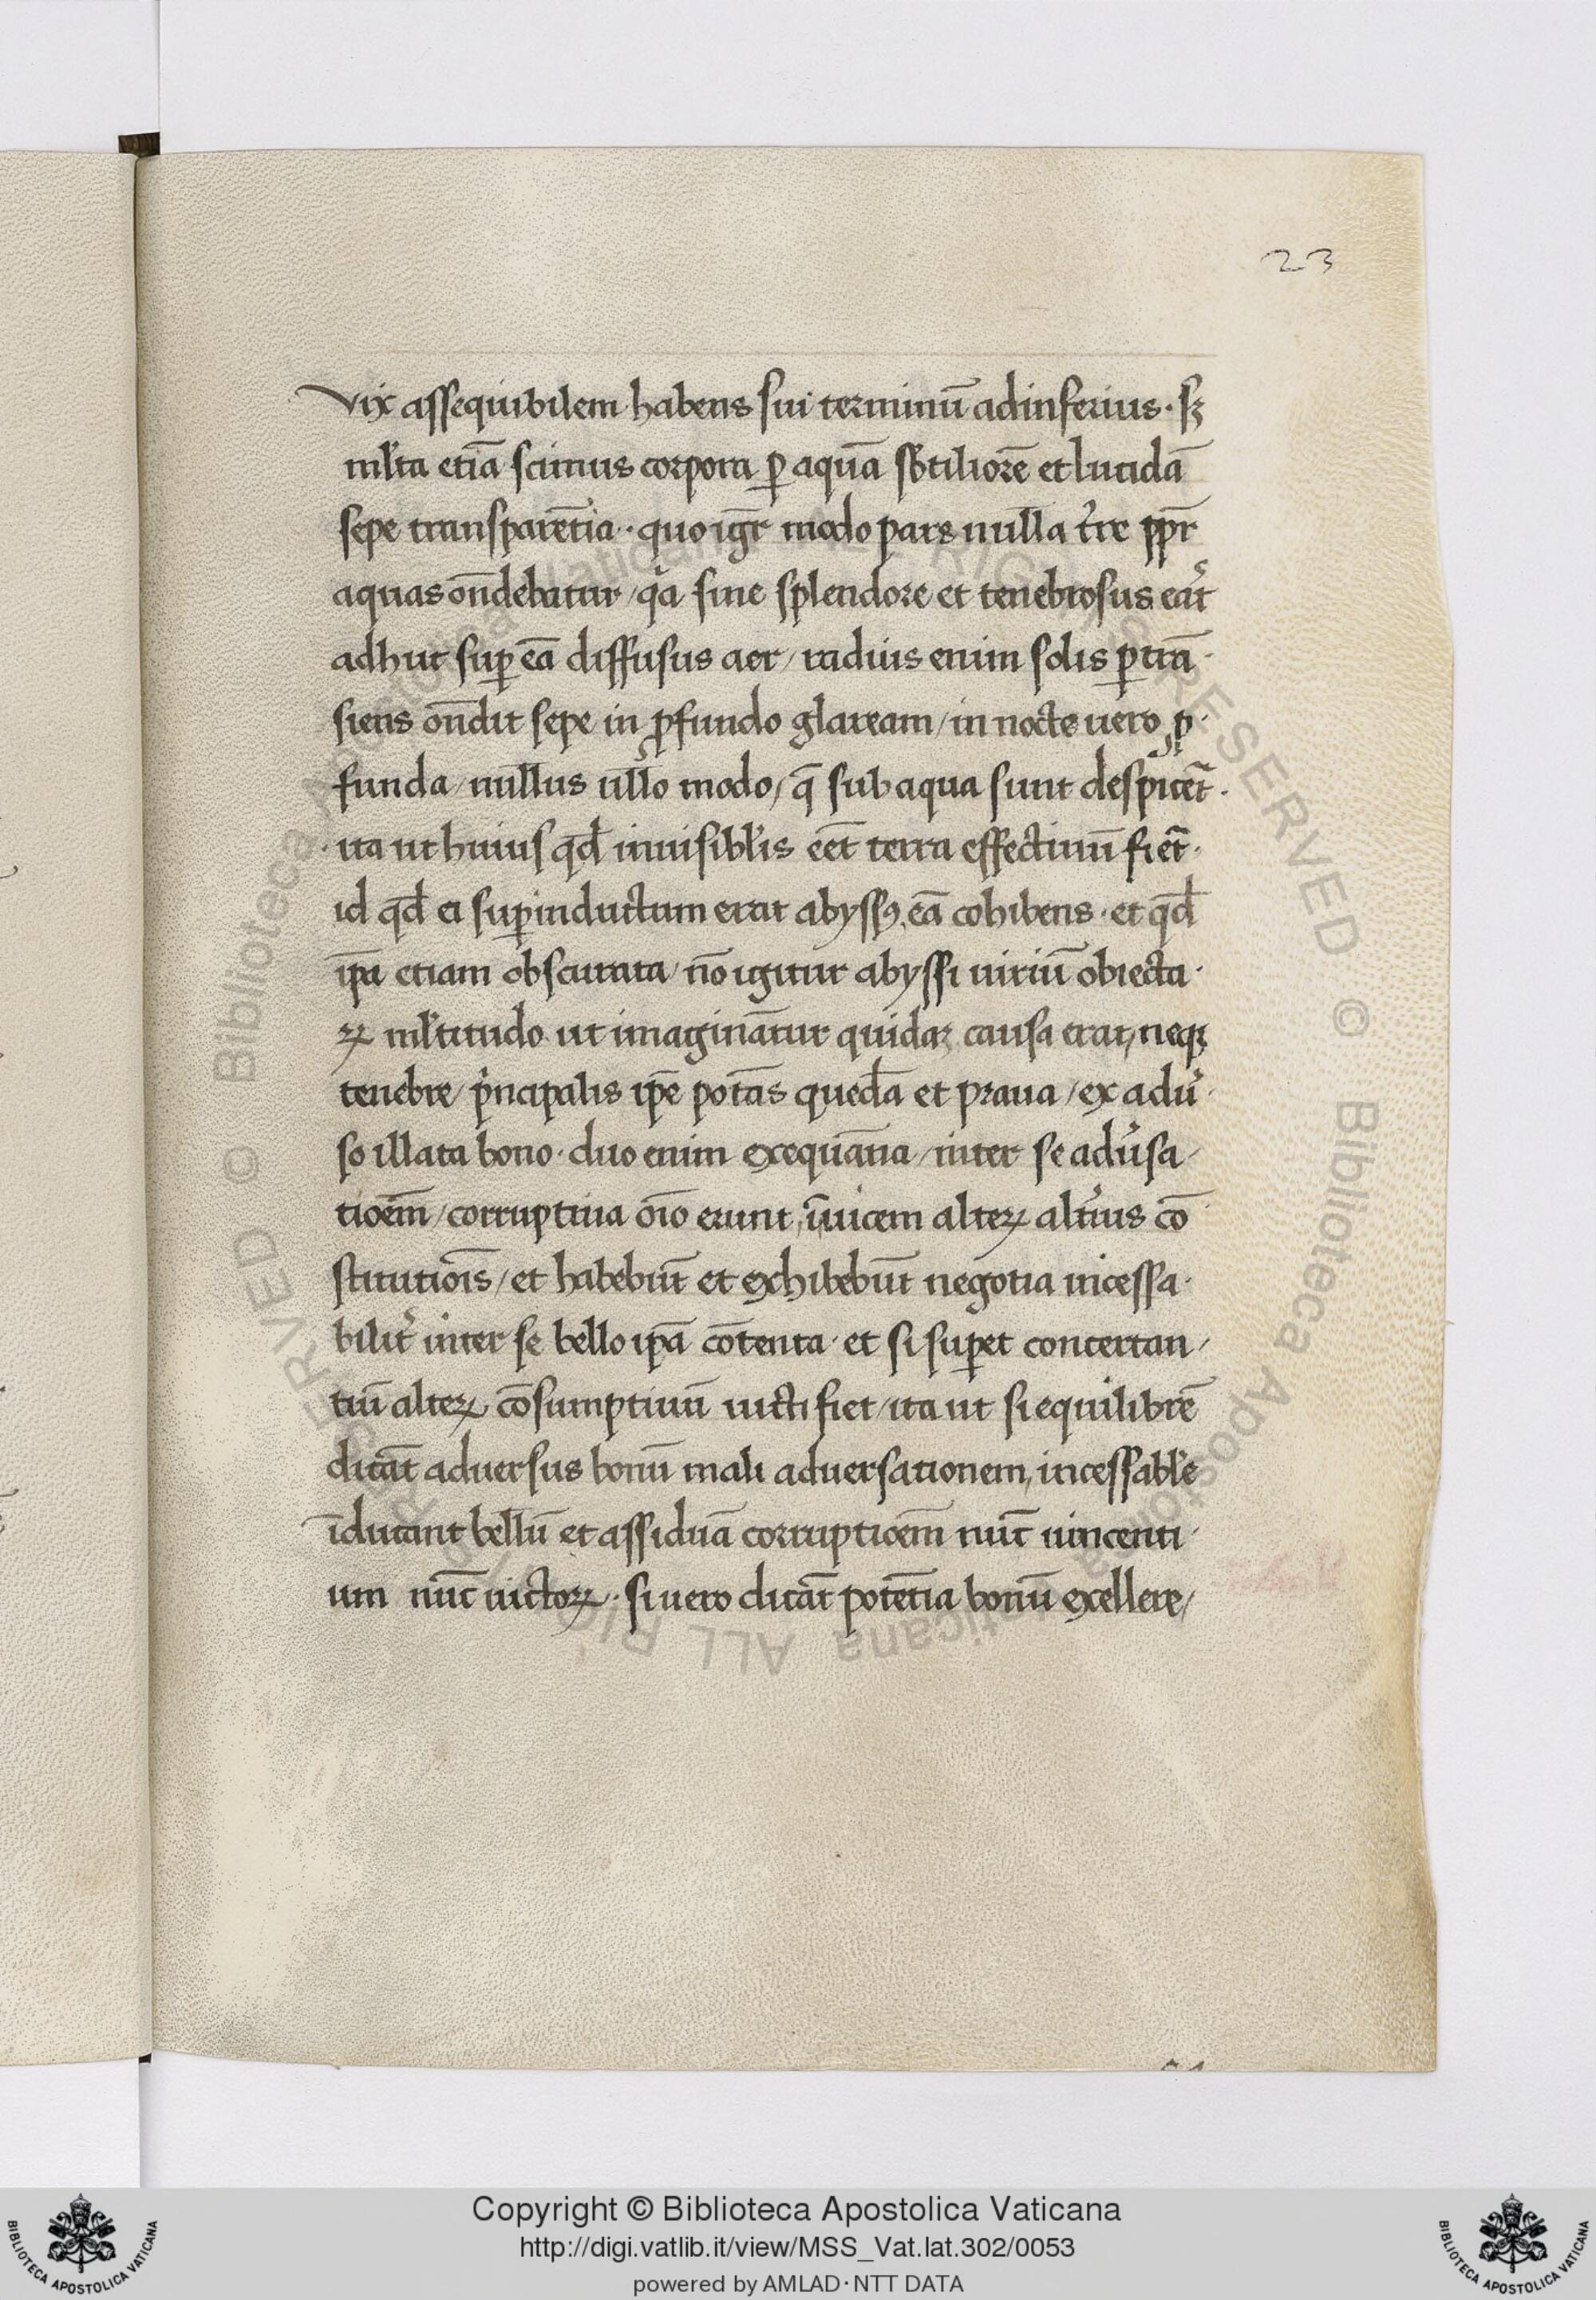 23
vix assequibilem habens sui terminū ad inferius · sꝫ
ml̓ta etiā scimus corpora ꝑ aquā sb̓tiliorē et lucidā
sepe transparētia · quo igr̄ modo pars nulla t̓re ppr̄
aquas on̄debatur / q̓a sine splendore et tenebrosus eāt
adhuc suꝑ eā diffusus aer / radius enim solis ꝑtrā
siens on̄dit sepe in ꝓfundo glaream / in nocte uero ꝓ
funda / nullus ullo modo / q̄ sub aqua sunt despicet̄ ·
ita ut huius qd̄ inuisibl̓is eēt terra effectiuū fiet̄ ·
id qd̄ ei suꝑinductum erat abyssꝰ eā cohibens · et qd̄
ip̄a etiam obscurata / nō igitur abyssi uiriū obiecta ·
ꝝ ml̓titudo ut imaginātur quidaꝫ causa erat, neqꝫ
tenebre / p̓ncipalis ip̄e potās quedā et praua / ex adu̓ ·
so illata bono · duo enim exequātia / inter se adu̓sa /
tioēm / corruptiua oīo erunt, īuicem alteꝝ alt̓ius cō
stitutiōis / et habebūt et exhibebūt negotia incessa ·
bilit̓ inter se bello ip̄a cōtenta · et si suꝑet concertan /
tiū alteꝝ cōsumptiuū uicti fiet / ita ut si equilibrē
dicāt aduersus bonū mali aduersationem, incessabl̓e
īducant bellū et assiduā corruptioēm nūc uincenti ·
um nūc uictoꝝ · si uero dicāt potētia bonū exellere /
Copyright © Biblioteca Apostolica Vaticana
http://digi.vatlib.it/view/MSS_Vat.lat.302/0053
powered by AMLAD · NTT DATA
BIBLIOTECA APOSTOLICA VATICANA
BIBLIOTECA APOSTOLICA VATICANA